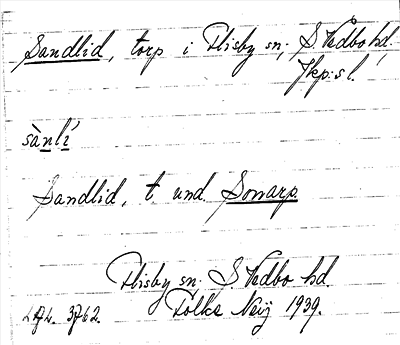 Sandlid, torp i Flisby sn, S. Vedbo hd.
Jkp:s l.
sànlí
Sandlid, t. und. Sonarp
Flisby sn. S. Vedbo hd.
Folke Neij 1939.
3762.